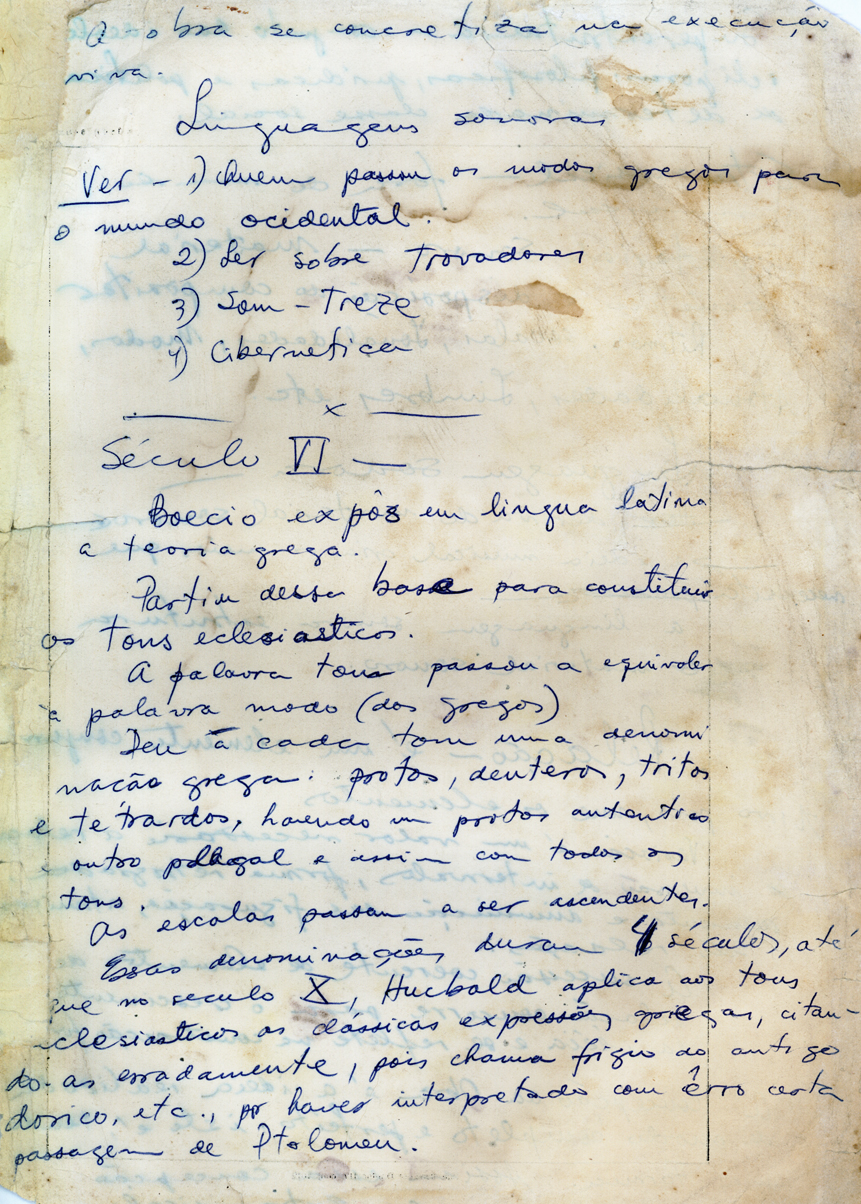 A obra se concretiza na execução
viva.
Linguagens sonoras
Ver - 1) Quem passou os modos gregos para
o mundo ocidental.
2) Ler sobre trovadores
3) Som-Treze
4) Cibernetica
x
Século VI —
Boecio expôs em lingua latina
a teoria grega.
Partiu dessa base para constituir
os tons eclesiasticos.
A palavra tom passou a equivaler
à palavra modo (dos gregos)
Deu à cada tom uma denomi
nação grega: protos, deuteros, tritos
e tétrardos, havendo um protos autentico
outro plagal e assim com todos os
tons.
As escalas passam a ser ascendentes.
Essas denominações duram 4 séculos, até
que no seculo X, Hucbald aplica aos tons
eclesiasticos as clássicas expressões gregas, citan-
do-as erradamente, pois chama frigio ao antigo
dorico, etc., por haver interpretado com êrro certa
passagem de Ptolomeu.